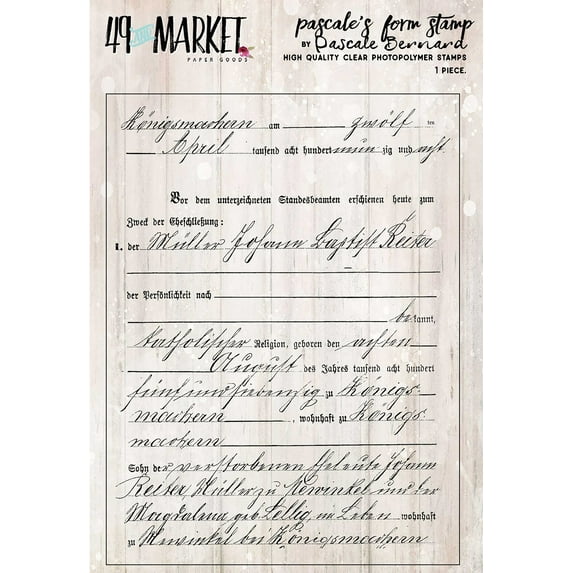 49 AND MARKET.
PAPER GOODS
pascale's form stamp
BY Pascale Bernard
HIGH QUALITY CLEAR PHOTOPOLYMER STAMPS
1 PIECE.
Königsmachern am zwölf ten
April tausend acht hundert neun zig und acht.
Vor dem unterzeichneten Standesbeamten erschienen heute zum
Zweck der Eheschließung:
1. der Müller Johann Baptist Reiter
der Persönlichkeit nach
bekannt,
katholischer Religion, geboren den achten
August des Jahres tausend acht hundert
fünf und siebenzig zu Königs-
machern, wohnhaft zu Königs-
machern
Sohn der verstorbenen Eheleute Johann
Reiter, Müller zu Mewinkel und der
Magdalena geb. Lellig, im Leben wohnhaft
zu Mewinkel bei Königsmachern